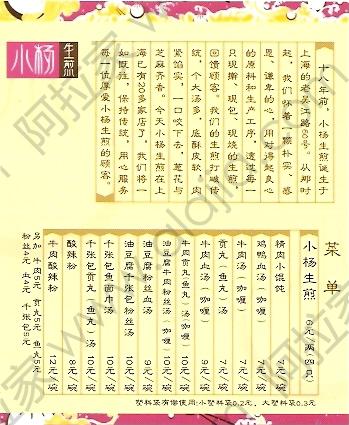 小杨生煎
十八年前，小杨生煎诞生于
上海的老吴江路60号。从那时
起，我们怀着一颗朴实、感
恩、谦卑的心，用对得起良心
的原料和生产工序，透过每一
只现擀、现包、现烧的生煎，
回馈顾客。我们的生煎打破传
统，个大汤多，底酥皮软，肉
紧馅实，一口咬下去，葱花与
芝麻齐香。今天小杨生煎在上
海已有20多家店了，我们将一
如既往，保持传统，用心服务
每一位厚爱小杨生煎的顾客。
菜单
小杨生煎 6元/两(四只)
精肉小馄饨 7元/碗
鸡鸭血汤 7元/碗
牛肉汤(咖喱) 7元/碗
贡丸(鱼丸)汤 7元/碗
牛肉血汤(咖喱) 9元/碗
牛肉贡丸(鱼丸)汤(咖喱) 10元/碗
油豆腐牛肉粉丝汤(咖喱) 10元/碗
油豆腐粉丝血汤 9元/碗
油豆腐千张包粉丝汤 10元/碗
千张包鱼面巾汤 10元/碗
千张包贡丸(鱼丸)汤 10元/碗
酸辣粉 8元/碗
牛肉酸辣粉 12元/碗
另加 牛肉5元 贡丸5元 鱼丸5元
粉丝4元 血4元 千张包5元
塑料袋有偿使用:小塑料袋0.2元，大塑料袋0.3元